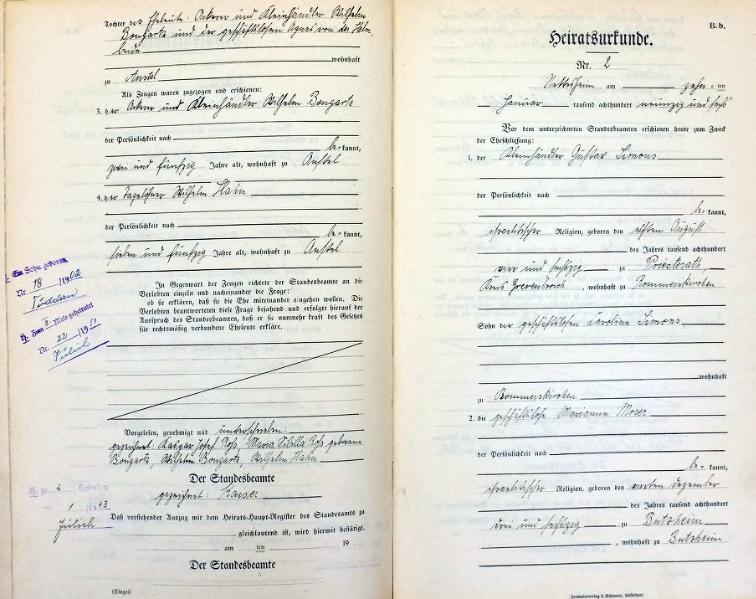 Tochter der Eheleute: Ackerer und Kleinhändler Wilhelm
Bongartz und der geschäftslosen Agnes von der
wohnhaft
zu Anstel
Als Zeugen waren zugezogen und erschienen:
3. der Ackerer und Kleinhändler Wilhelm Bongartz
der Persönlichkeit nach
be- kannt,
zwei und fünfzig Jahre alt, wohnhaft zu Anstel
4. der Tagelöhner Wilhelm Hahn
der Persönlichkeit nach
be- kannt,
sieben und fünfzig Jahre alt, wohnhaft zu Anstel
In Gegenwart der Zeugen richtete der Standesbeamte an die
Verlobten einzeln und nacheinander die Frage:
ob sie erklären, daß sie die Ehe miteinander eingehen wollen. Die
Verlobten beantworteten diese Frage bejahend und erfolgte hierauf der
Ausspruch des Standesbeamten, daß er sie nunmehr kraft des Gesetzes
für rechtmäßig verbundene Eheleute erkläre.
Vorgelesen, genehmigt und unterschrieben:
gezeichnet: Kaspar Josef Maria Sibilla geborene
Bongartz, Wilhelm Bongartz, Wilhelm Hahn.
Der Standesbeamte
gezeichnet: Kaiser
Daß vorstehender Auszug mit dem Heirats-Haupt-Register des Standesamts zu
gleichlautend ist, wird hiermit bestätigt.
am ten 19
Der Standesbeamte
(Siegel)
Ein Sohn geboren
Nr. 18 /1902
Zum II Male geheiratet
Nr. 22 /19
Jülich
Jülich
B.b.
Heiratsurkunde.
Nr. 2
am zehn- ten
Januar tausend achthundert neunzig und sechs
Vor dem unterzeichneten Standesbeamten erschienen heute zum Zweck
der Eheschließung:
1. der Kleinhändler Gustav Simons
der Persönlichkeit nach
be- kannt,
israelitischer Religion, geboren den August
des Jahres tausend achthundert
vier und sechszig zu Priesterath,
Kreis Grevenbroich, wohnhaft zu Rommerskirchen
Sohn der geschäftslosen Carolina Simons
wohnhaft
zu Rommerskirchen
2. die geschäftslose Marianna Moser
der Persönlichkeit nach
be- kannt,
israelitischer Religion, geboren den vierten Dezember
des Jahres tausend achthundert
drei und sechszig zu Butzheim
, wohnhaft zu Butzheim